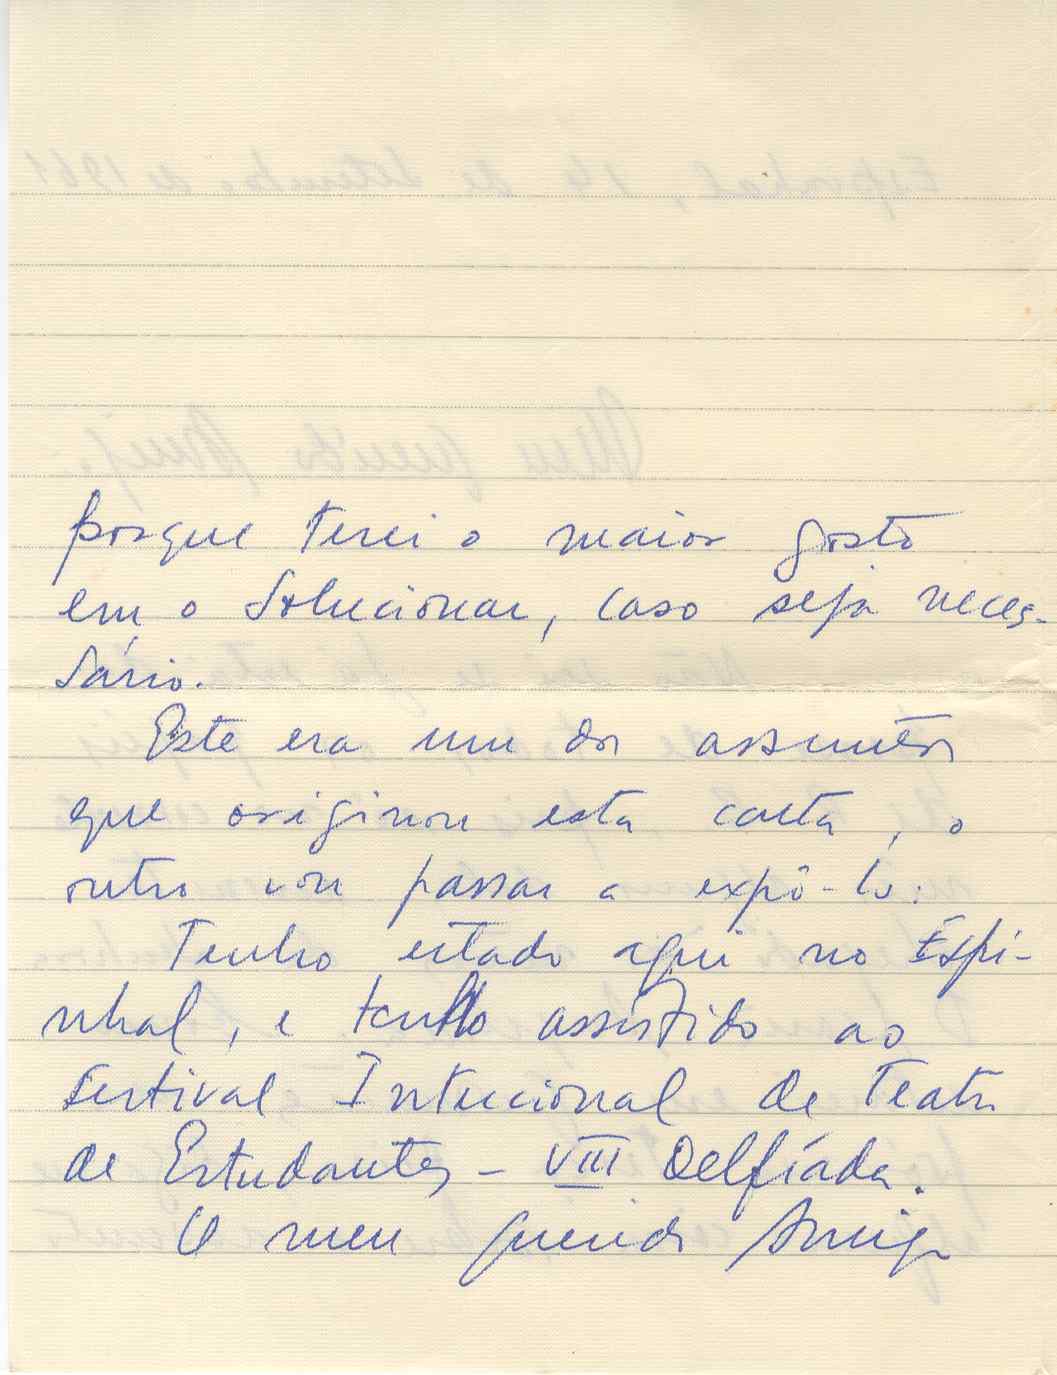 porque terei o maior gosto
em o solucionar, caso seja neces-
sário.
Este era um dos assuntos
que originou esta carta, o
outro vou passar a expô-lo:
Tenho estado aqui no Espi-
nhal, e tenho assistido ao
Festival Internacional de Teatro
de Estudantes - VIII Delfíada.
O meu querido Amigo